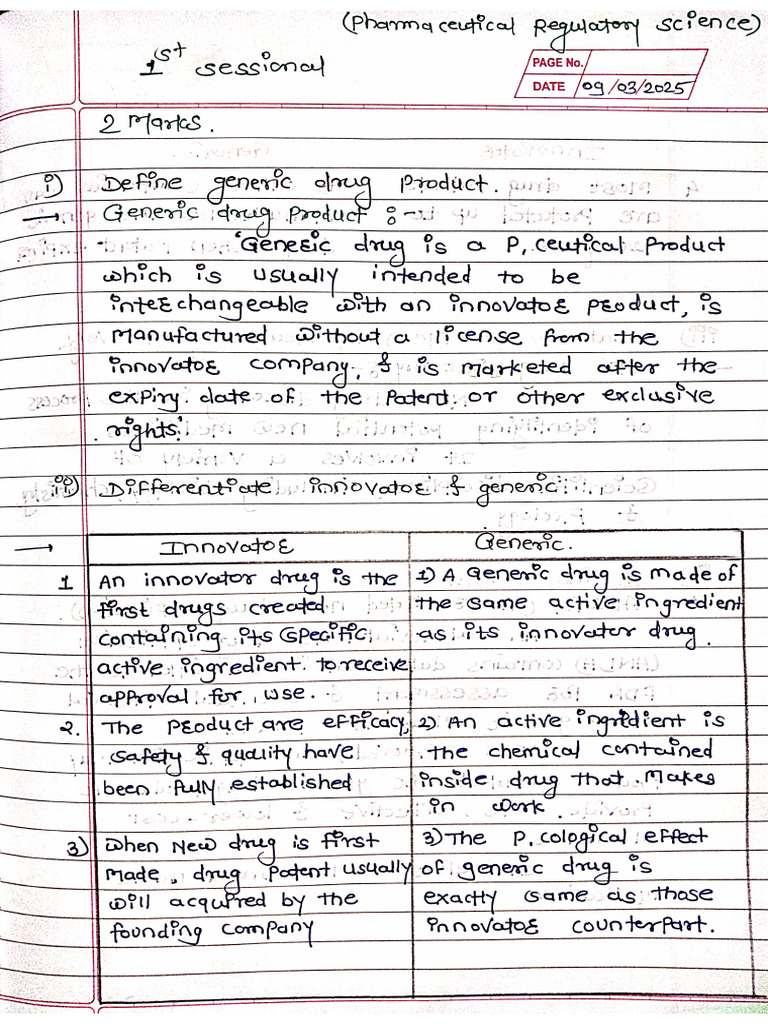 (Pharmaceutical Regulatory Science)
1st sessional
PAGE No.
DATE 09/03/2025
2 Marks.
i) Define generic drug Product.
→ Generic drug Product :-
'Generic drug is a P. ceutical Product
which is usually intended to be
interchangeable with an innovator product, is
manufactured without a license from the
innovator company, & is marketed after the
expiry date of the Patent or other exclusive
rights'
ii) Differentiate innovator & generic
→ Innovator
Generic.
1 An innovator drug is the
first drugs created
containing its specific
active ingredient to receive
approval for use.
1) A Generic drug is made of
the same active ingredient
as its innovator drug.
2. The product are efficacy,
safety & quality have
been fully established
2) An active ingridient is
the chemical contained
inside drug that makes
in work.
3) When New drug is first
made, drug patent usually
will acquired by the
founding company
3) The P. cological effect
of generic drug is
exactly same as those
innovator counterpart.